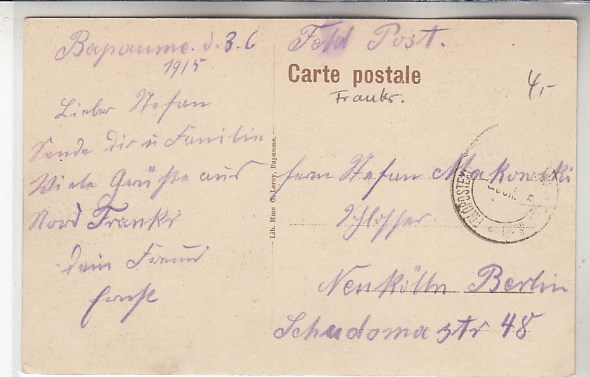 Bapaume. d. 3. 6
1915
Lieber Stefan
Sende dir u Familie
Viele Grüße aus
Nord Frankr
dein Freund
Ernst
Feld Post.
Carte postale
Frankr.
4,-
Lib. Mme G. Leroy, Bapaume.
herrn Stefan Makowski
Schlosser
Neukölln Berlin
Schudoma str 48
FELDPOSTEXP